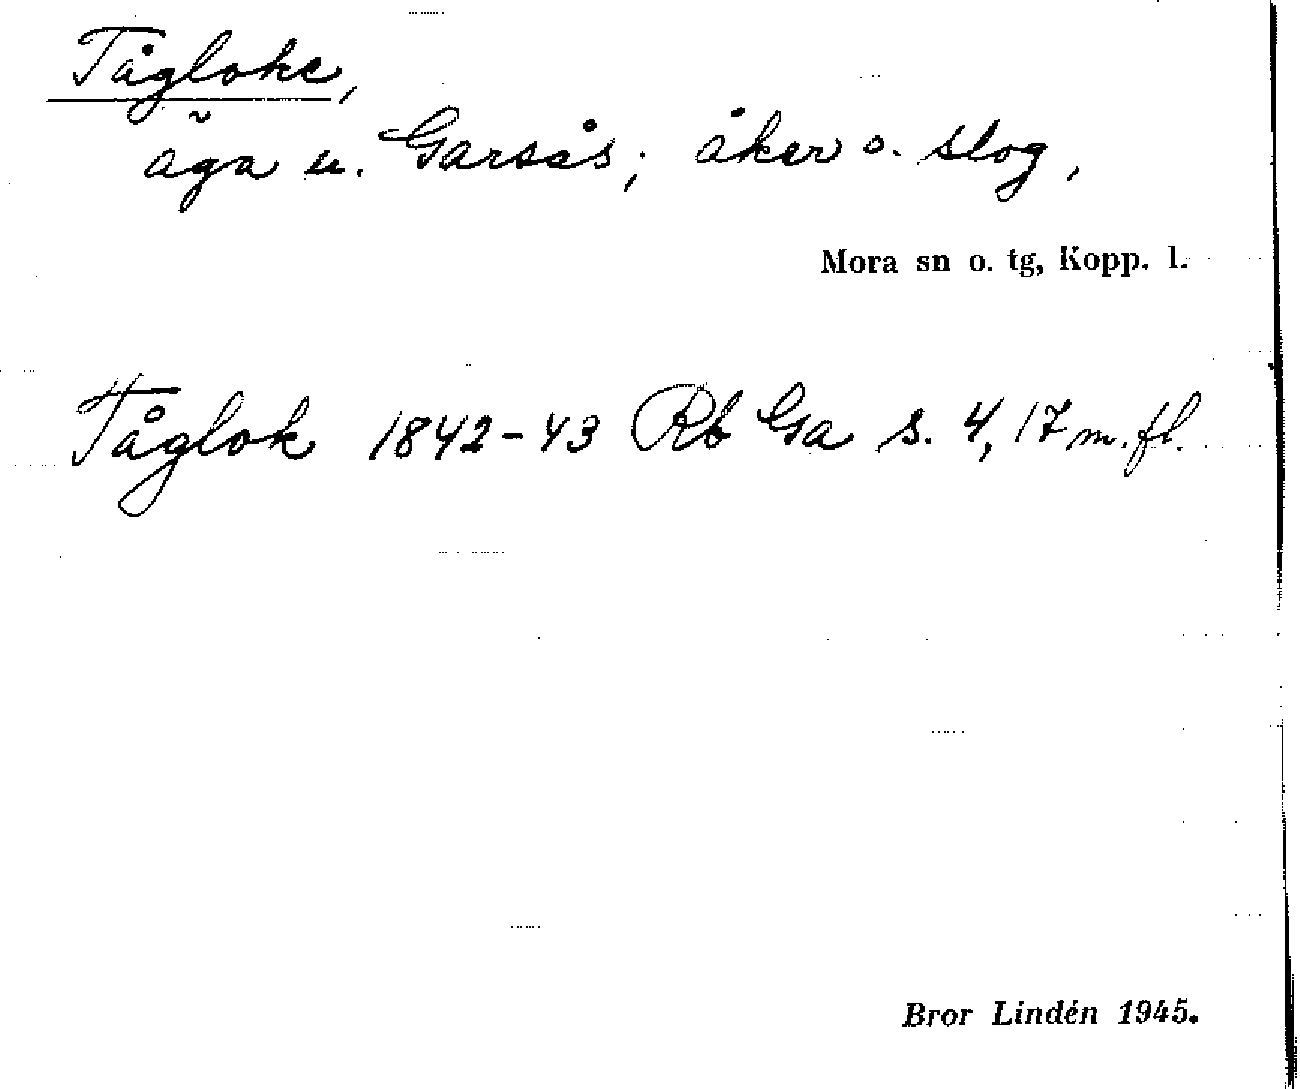 Tågloke,
äga u. Garsås; åker o. slog,
Mora sn o. tg, Kopp. l.
Tåglok 1842-43 Rb Ga s. 4, 17 m. fl.
Bror Lindén 1945.